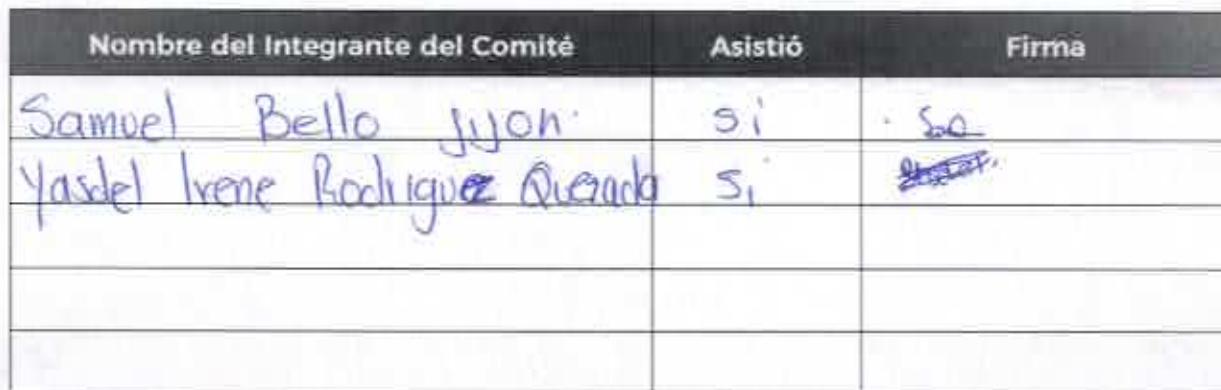 Nombre del Integrante del Comité Asistió Firma
Samuel Bello si
Yasdel Irene Rodriguez Quezada Si